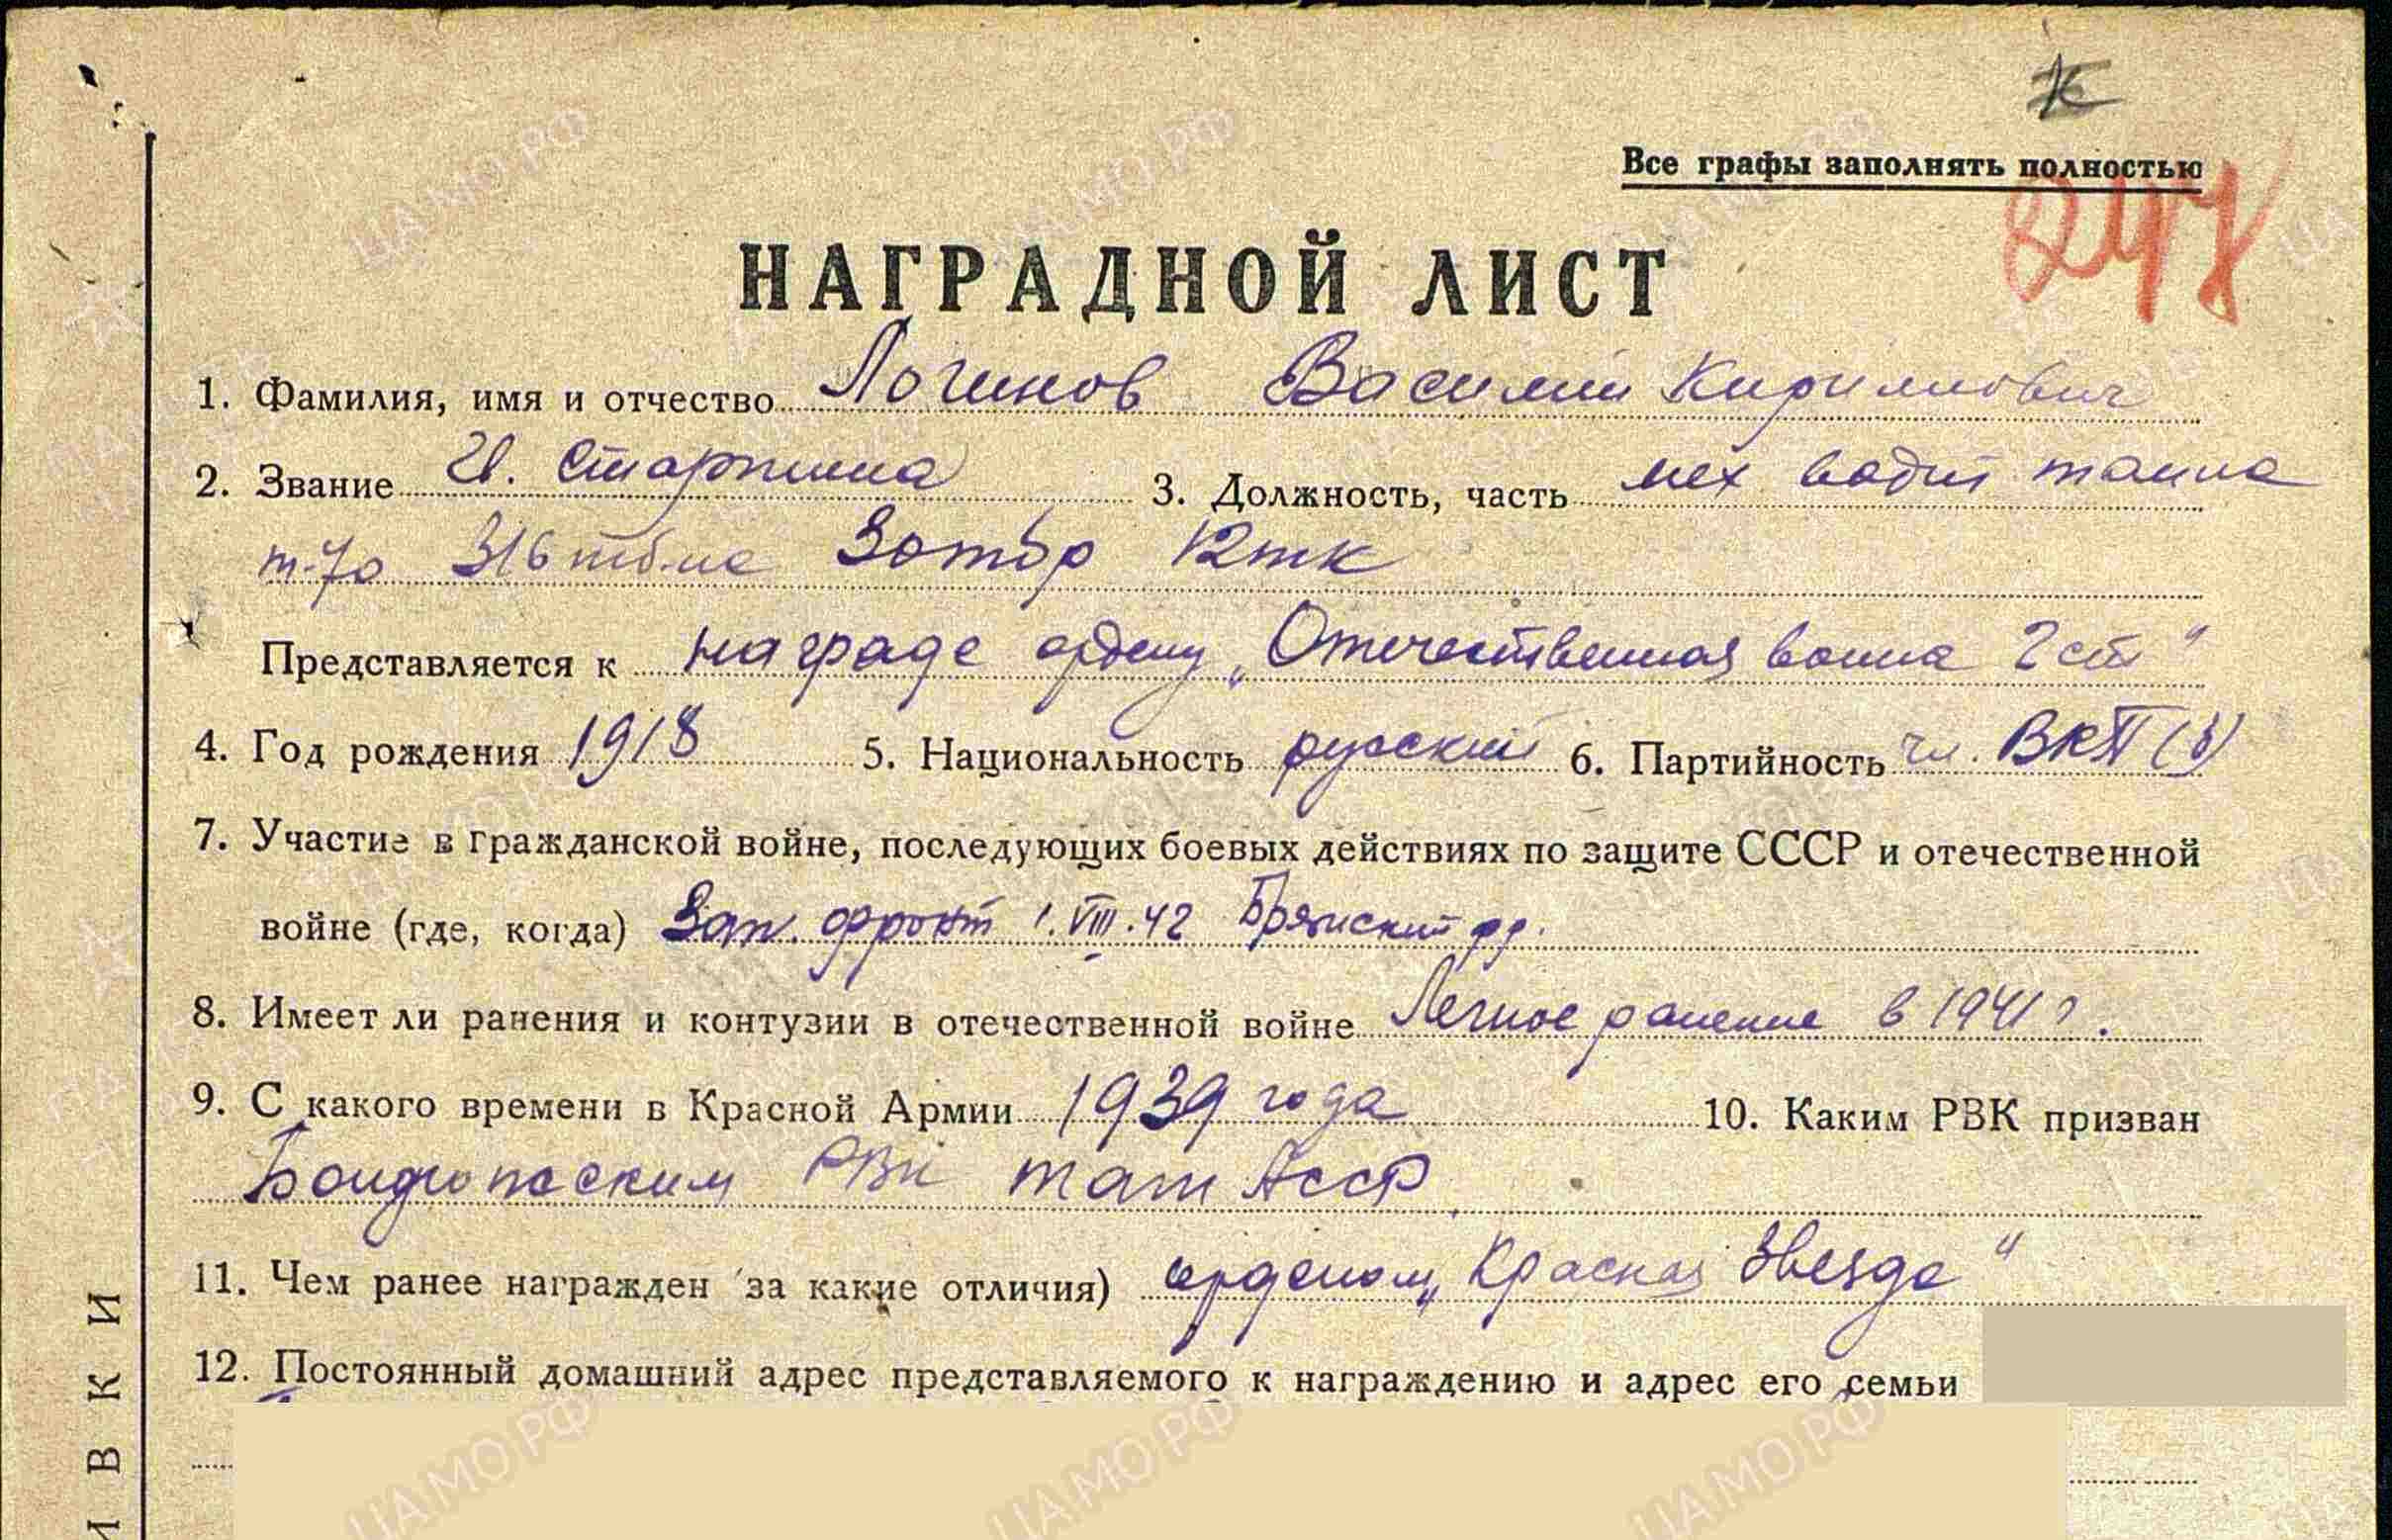 Все графы заполнять полностью
247
НАГРАДНОЙ ЛИСТ
1. Фамилия, имя и отчество Логинов Василий Кириллович
2. Звание Ст. Старшина 3. Должность, часть мех водит танка
т-70 316 тб-на 30тбр 12тк
Представляется к награде ордену „Отечественная война 2 ст"
4. Год рождения 1918 5. Национальность русский 6. Партийность чл. ВКП(б)
7. Участие в гражданской войне, последующих боевых действиях по защите СССР и отечественной
войне (где, когда) Зап. фронт 1.VIII.42 Брянский фр.
8. Имеет ли ранения и контузии в отечественной войне Легкое ранение в 1941 г.
9. С какого времени в Красной Армии 1939 года 10. Каким РВК призван
РВК Тат АССР
11. Чем ранее награжден за какие отличия) орденом „Красная Звезда"
12. Постоянный домашний адрес представляемого к награждению и адрес его семьи
ИВКИ
ЦАМО РФ